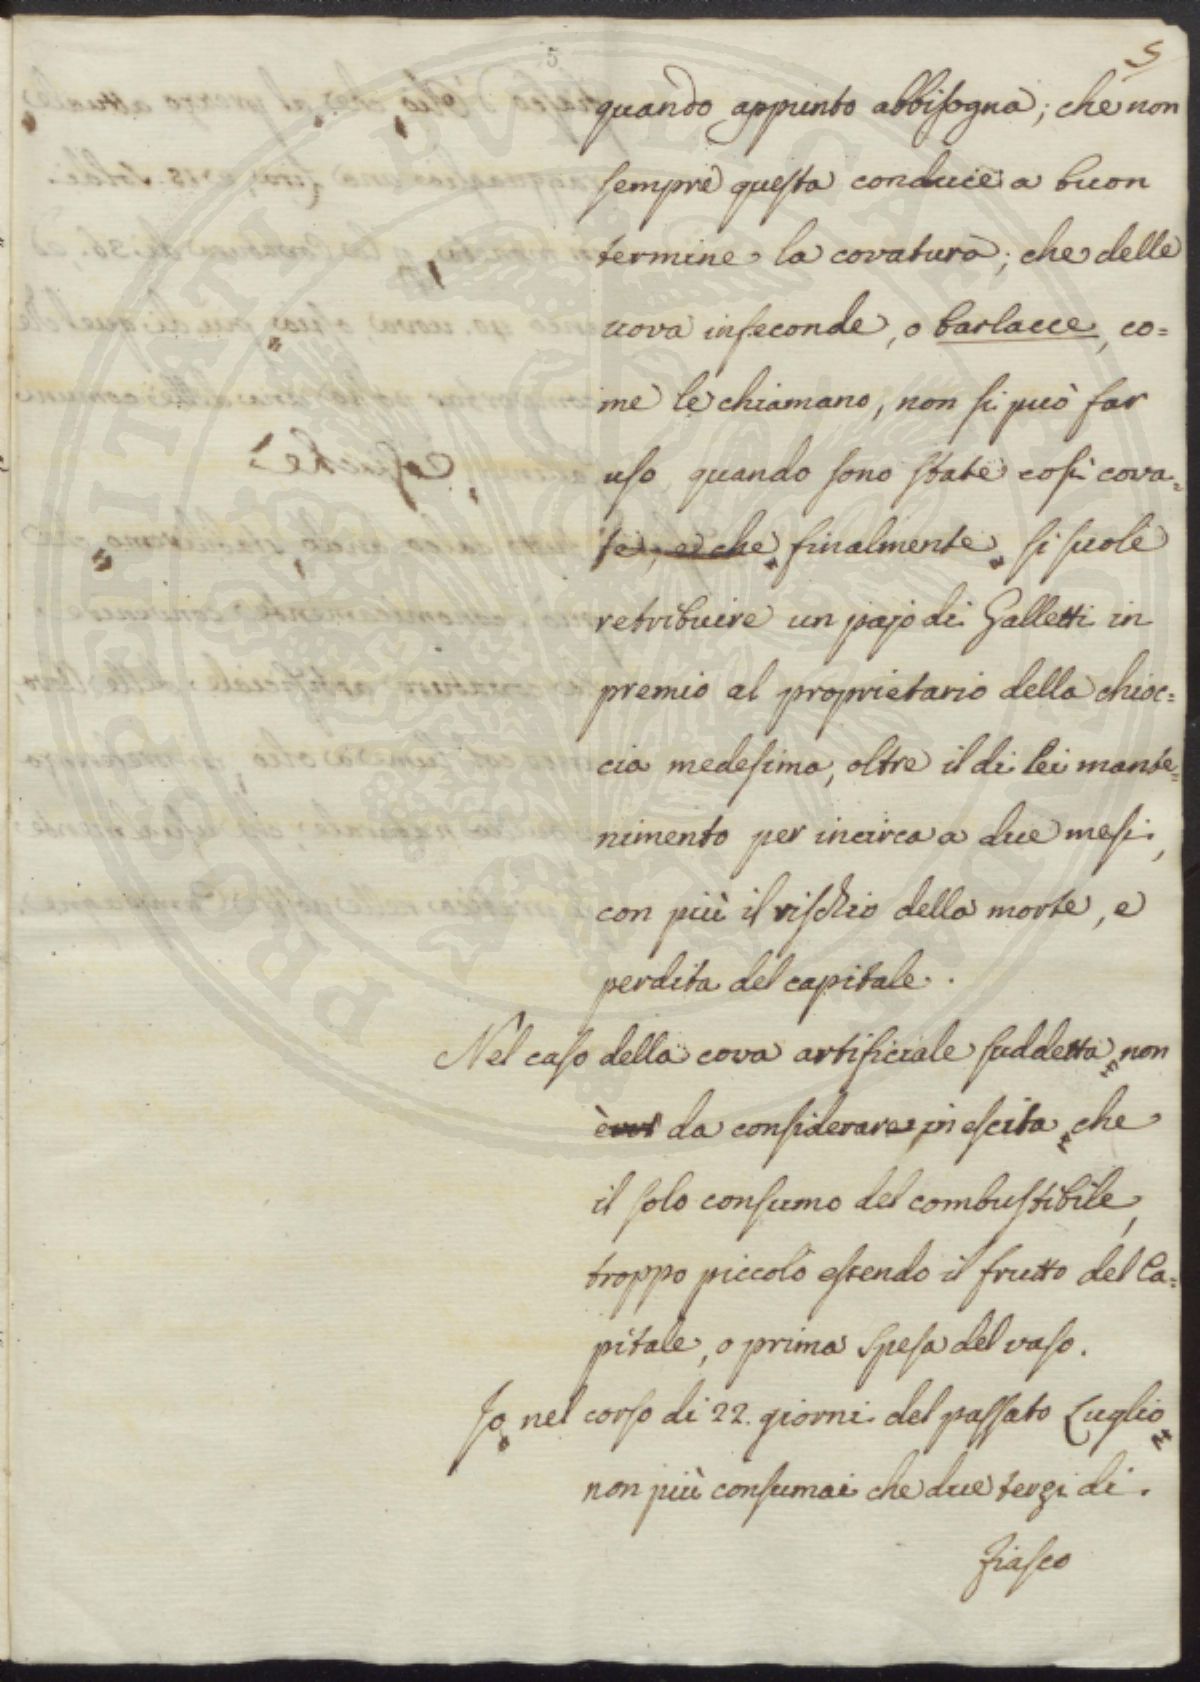 5
5
quando appunto abbisogna; che non
sempre questa conduce a buon
termine la covatura; che delle
uova infeconde, o barlacce, co=
me le chiamano, non si può far
uso quando sono state così cova=
te, ed che finalmente si suole
retribuire un pajo di Galletti in
premio al proprietario della chioc=
cia medesima, oltre il di lei mante=
nimento per incirca a due mesi,
con più il rischio della morte, e
perdita del capitale.
Nel caso della cova artificiale suddetta non
è da considerare in escita che
il solo consumo del combustibile,
troppo piccolo essendo il frutto del Ca=
pitale, o prima spesa del vaso.
Io nel corso di 22. giorni del passato Luglio
non più consumai che due terzi di
fiasco
PVBLICAE